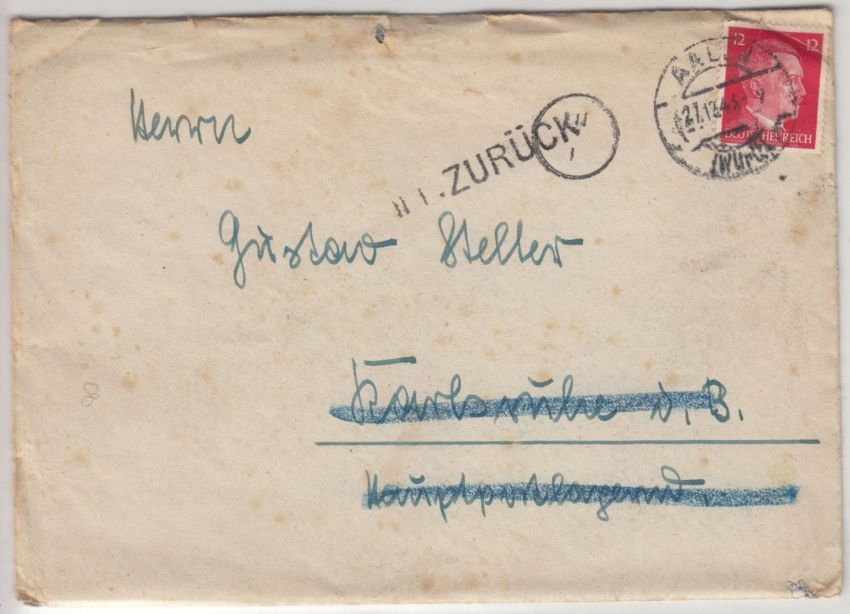 12 12
DEUTSCHES REICH
AALEN
27.12.43
(WÜRTT)
ZURÜCK
Herrn
Gustav Steller
Karlsruhe i. B.
Hauptpostlagernd.